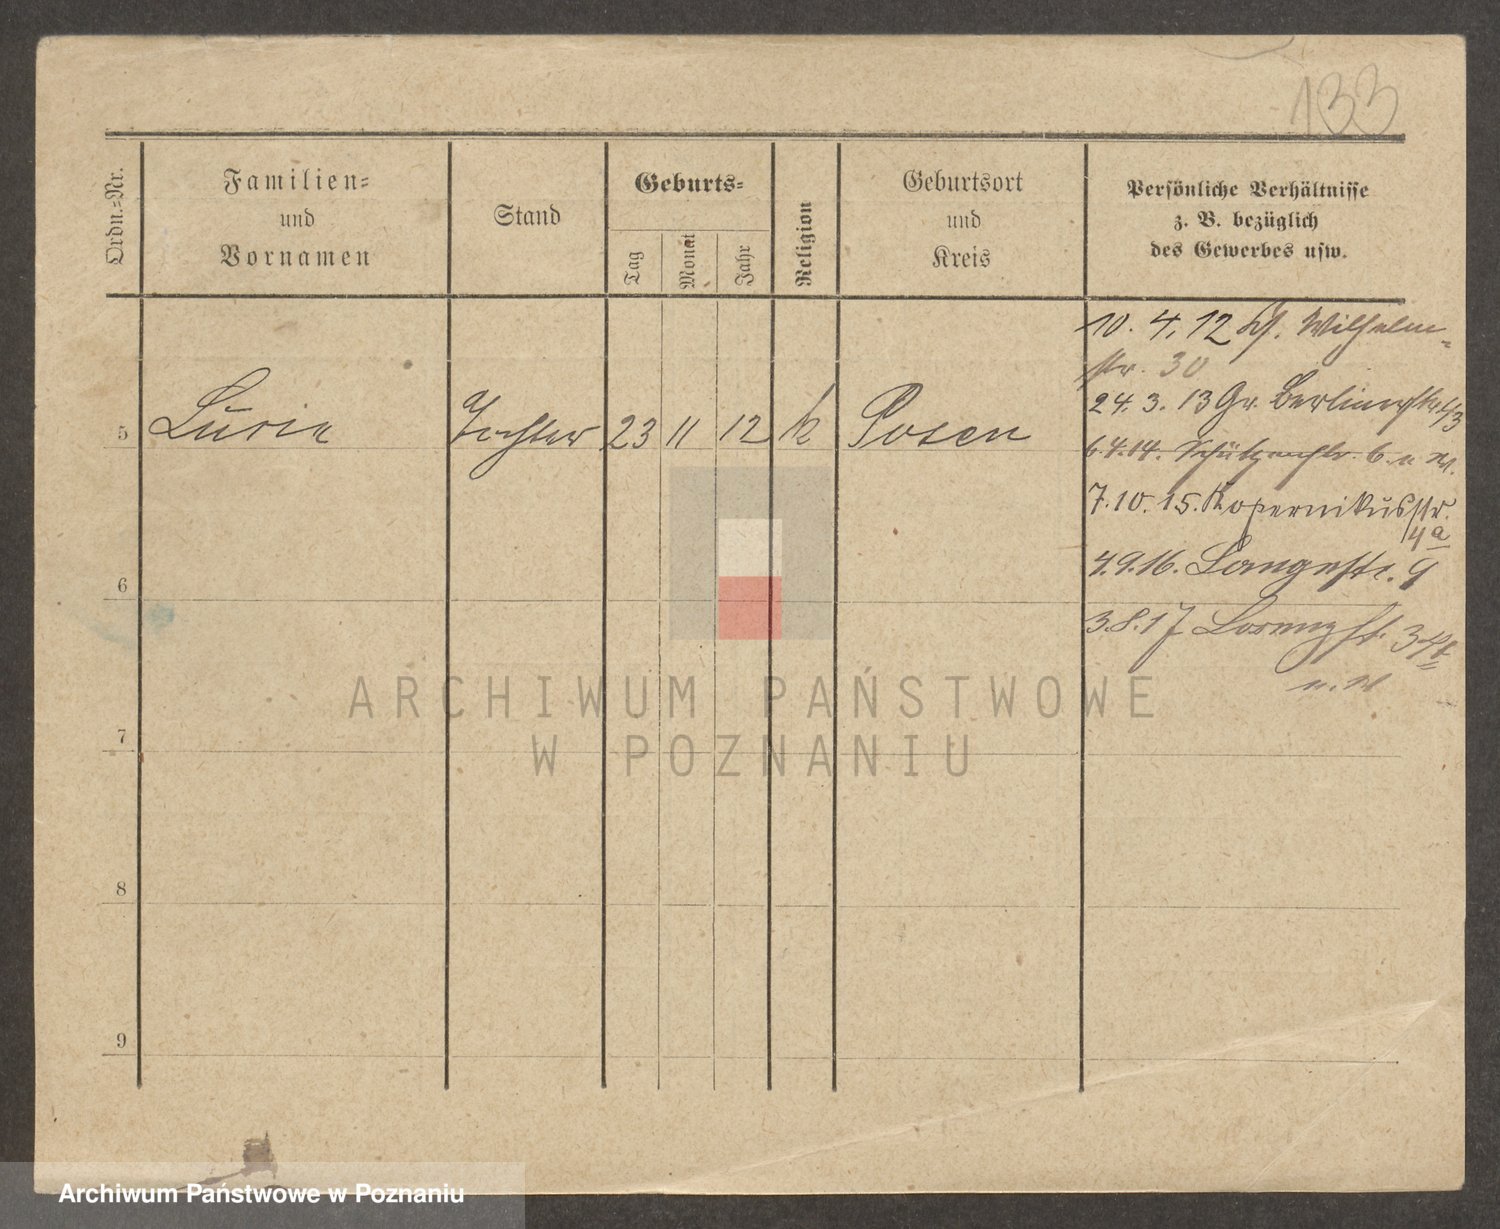 133
Ordn.=Nr.
Familien=
und
Vornamen
Stand
Geburts=
Tag
Monat
Jahr
Religion
Geburtsort
und
Kreis
Persönliche Verhältnisse
z. B. bezüglich
des Gewerbes usw.
10. 4. 12 Wilhelm=
str. 30
24. 3. 13 Gr. Berlinerstr. 43
5 Lucie Tochter 23 11 12 k Posen
6.4.14. Schützenstr. 6.
7.10.15. Kopernikusstr.
4a
4.9.16. Langestr. 9
6
3.8.17
7
8
9
ARCHIWUM PAŃSTWOWE
W POZNANIU
Archiwum Państwowe w Poznaniu